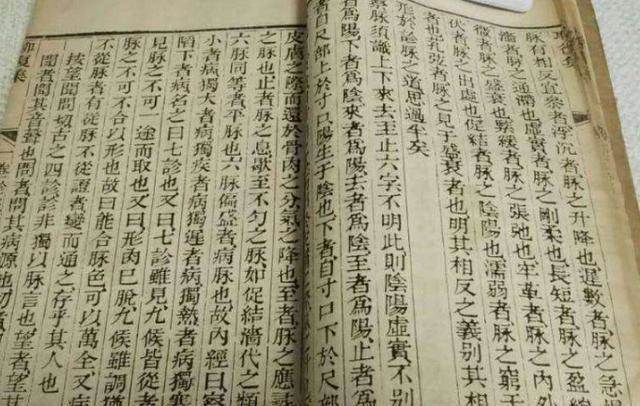 脈有相反宜察者浮沉者脈之升降也遲數者脈之急
濇者脈之通滯也虛實者脈之剛柔也長短者脈之盈縮
微者脈之盛衰也緊緩者脈之張弛也牢革者脈之內外
伏者脈之出處也促結者脈之陰陽也濡弱者脈之窮于
者也芤弦者脈之見于盛衰者也明其相反之義別其相
形於診脈之道思過半矣
察脈須識上下來去至止六字不明此則陰陽虛實不別
者爲陽下者爲陰來者爲陽去者爲陰至者爲陽止者
者自尺部上於寸口陽生于陰也下者自寸口下於尺部
皮膚之際而還於骨肉之分氣之降也至者脈之應
之脈也止者脈之息歇至不勻之脈如促結濇代之類
六脈同等者平脈也六脈偏盛者病脈也故內經曰察
小者病獨大者病獨疾者病獨遲者病獨熱者病獨寒
陷下者病名之曰七診也又曰七診雖見九候皆從者
見脈之不可一途而取也又曰形肉已脫九候雖調猶
脈之不可不合以形也故曰能合脈色可以萬全又病
不從脈者有從脈不從證者變而通之存乎其人也
按望聞問切古之四診診非獨以脈言也望者望其
聞者聞其音聲也問者問其病源也切者